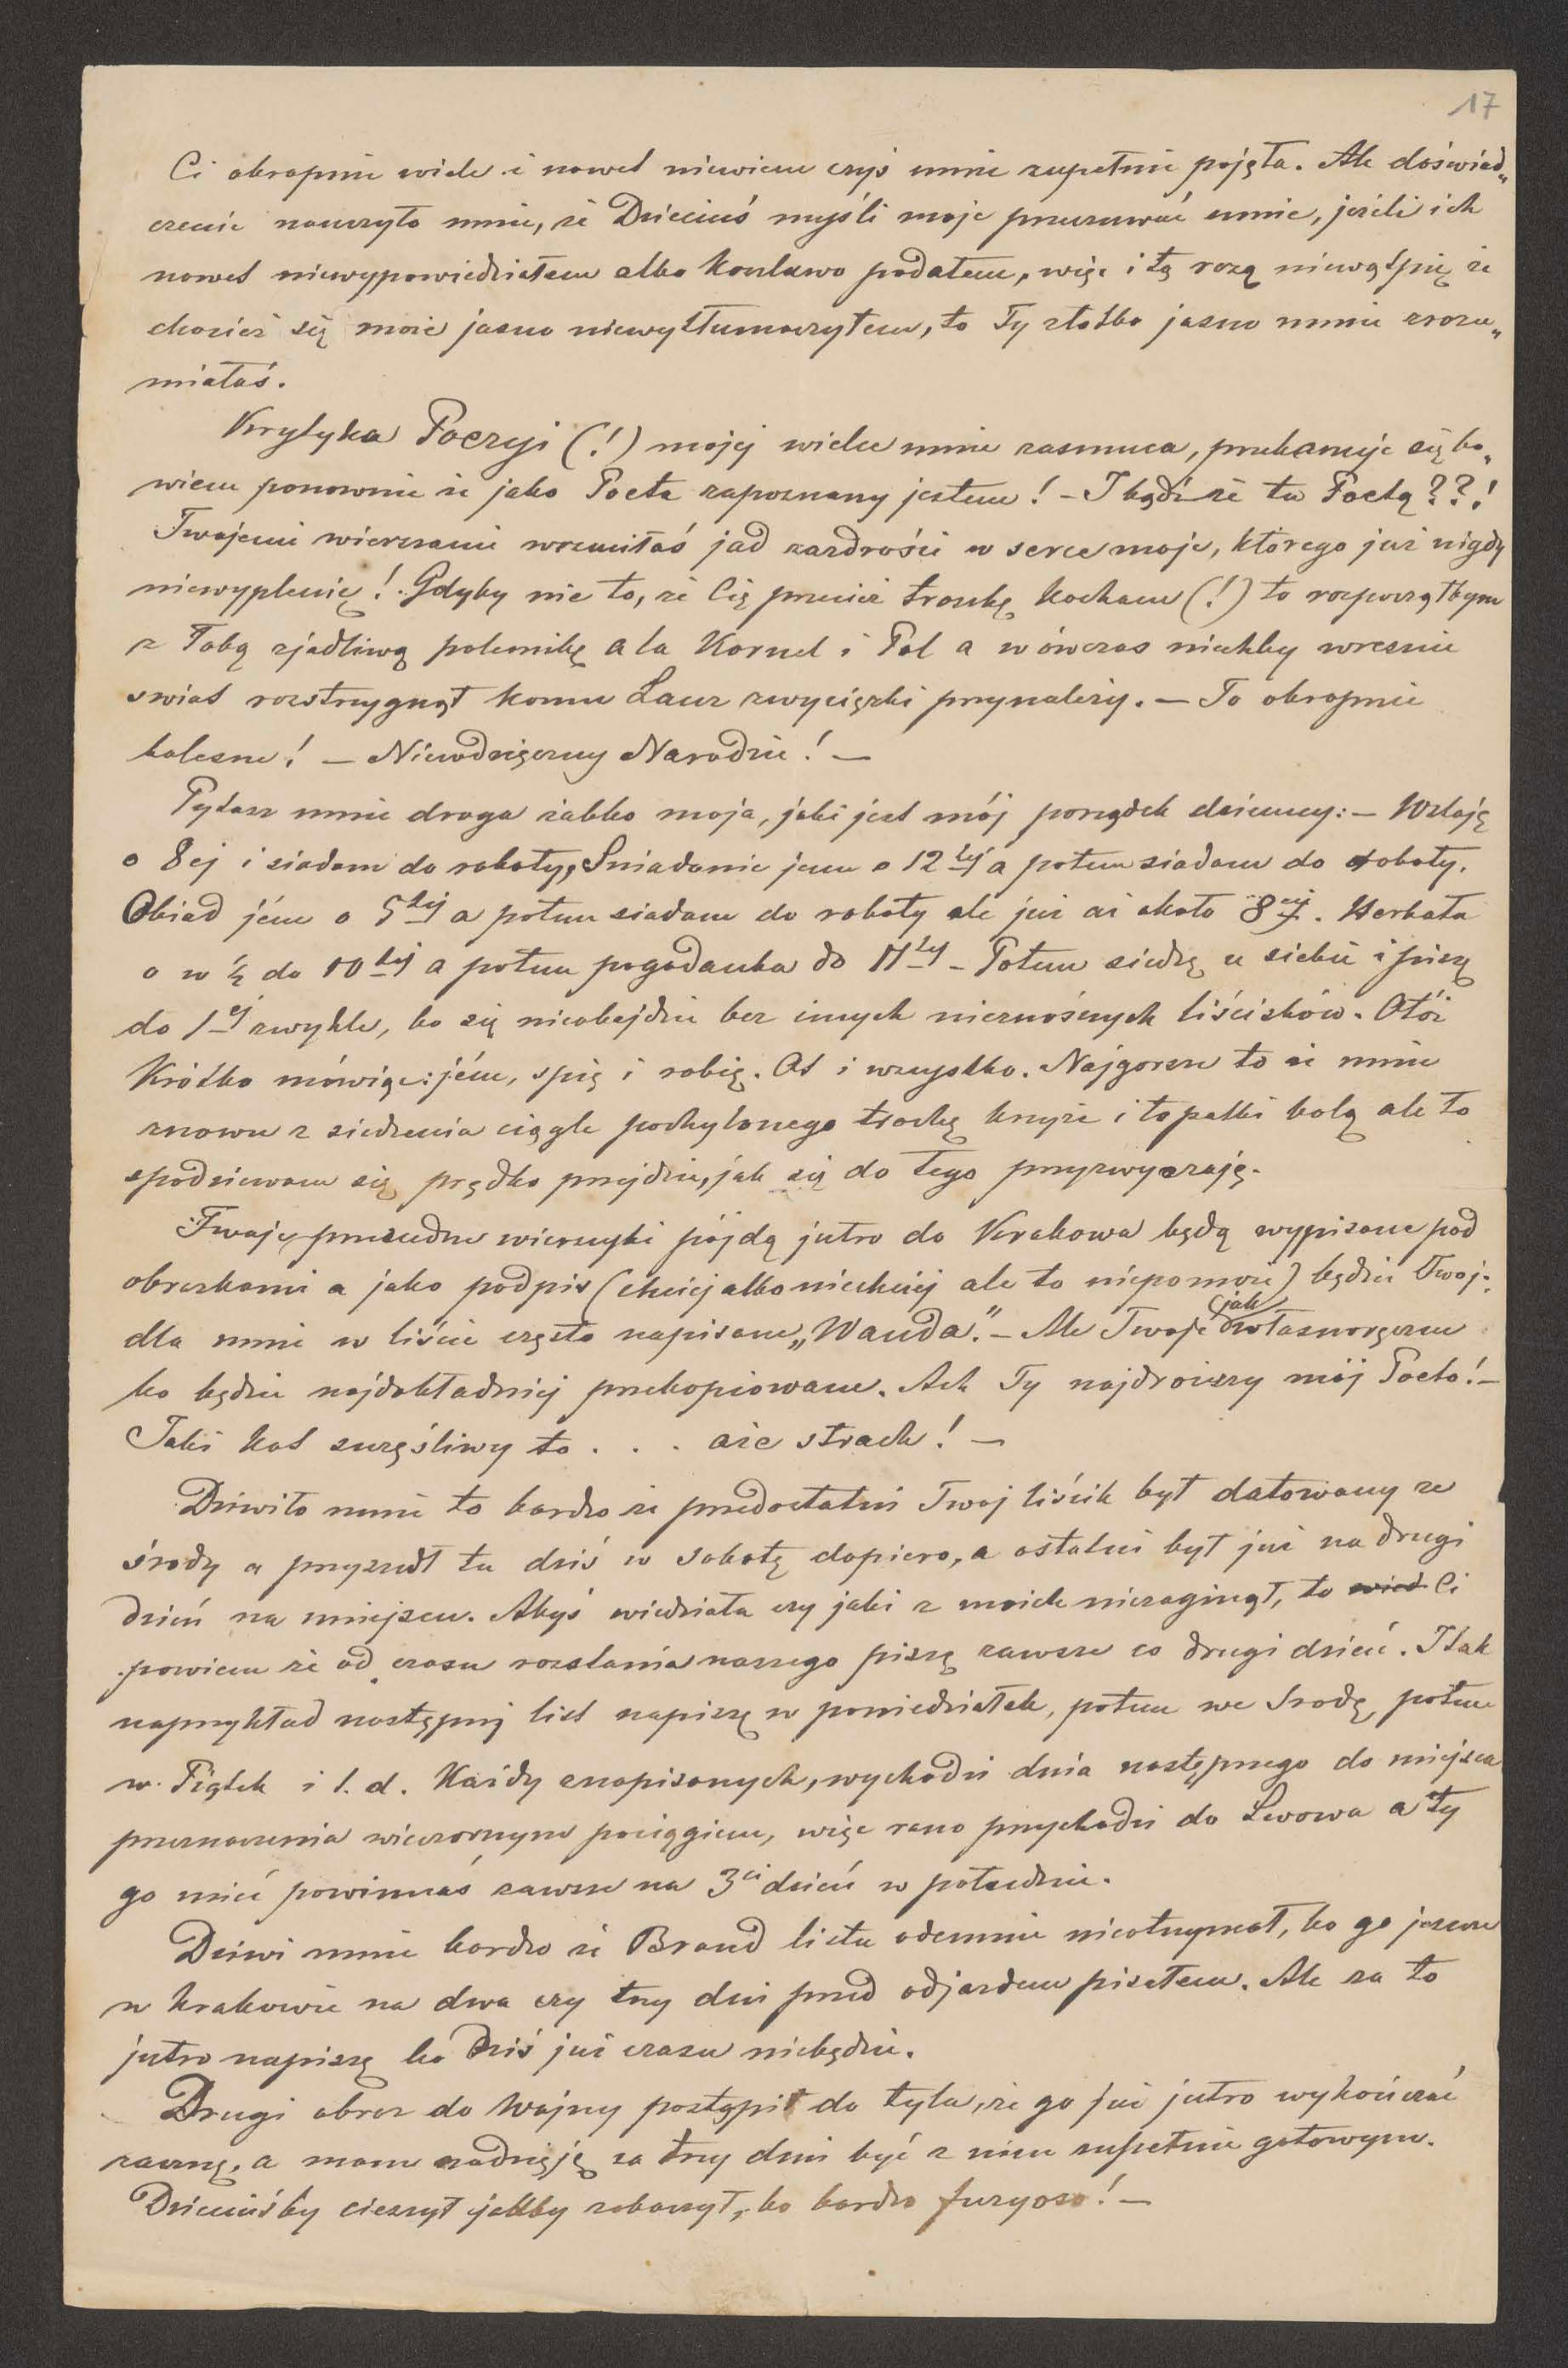 17
Ci okropnie wiele i nawet niewiem czyś mnie zupełnie pojęła. Ale doświad„
czenie nauczyło mnie, że Dzieciuś myśli moje przeczuwać umie, jeżeli ich
nawet niewypowiedziałem albo koszlawo podałem, więc i tą rozą niewątpię że
chociaż się może jasno niewytłumaczyłem, to Ty złotko jasno mnie zrozu„
miałaś.
Krytyka Poezyi (!) mojej wielce mnie zasmuca, przekonuje się bo„
wiem ponownie że jako Poeta zapoznany jestem! – I bądź że tu Poetą??!
Twojemi wierszami wrzuciłaś jad zazdrości w serce moje, którego już nigdy
niewyplenię! Gdyby nie to, że Cię przecież troszkę kocham (!) to rozpocząłbym
z Tobą zjadliwą polemikę a la Kornel i Pol a wówczas niechby wreznie
świat rozstrzygnął komu Laur zwycięzki przynależy. – To okropnie
bolesne! – Niewdzięczny Narodzie! –
Pytasz mnie droga żabko moja, jaki jest mój porządek dzienny: – Wstaję
o 8ej i siadam do roboty, Śniadanie jem o 12tej a potem siadam do roboty.
Obiad jém o 5tej a potem siadam do roboty ale już aż około 8ej. Herbata
o w ½ do 10tej a potem pogadanka do 11tej – Potem siedzę u siebie i piszę
do 1ej zwykle, bo się nieobejdzie bez innych nieznośnych liścisków. Otóż
Krótko mówiąc: jém, śpię i robię. Ot i wszystko. Najgorsze to że mnie
znowu z siedzenia ciągle pochylonego trochę krzyże i łopatki bolą ale to
spodziewam się prędko przejdzie, jak się do tego przyzwyczaję.
Twoje przecudne wierszyki pójdą jutro do Krakowa będą wypisane pod
obrazkami a jako podpis (chciej albo niechciej ale to niepomoże) będzie Twoje
dla mnie w liście często napisane „Wanda.” – Ale Twoje jak własnoręczne
bo będzie najdokładniej przekopiowane. Ach Ty najdroższy mój Poeto! –
Taki kot szczęśliwy to . . . aże strach! –
Dziwiło mnie to bardzo że przedostatni Twój liścik był datowany ze
środy a przyszedł tu dziś w Sobotę dopiero, a ostatni był już na drugi
dzień na miejscu. Abyś wiedziała czy jaki z moich niezaginął, to wied Ci
powiem że od czasu rozstania naszego piszę zawsze co drugi dzień. I tak
naprzykład następny list napiszę w poniedziałek, potem we Srodę, potem
w Piątek i t. d. Każdy z napisanych, wychodzi dnia następnego do miejsca
przeznaczenia wieczornym pociągiem, więc rano przychodzi do Lwowa a ty
go mieć powinnaś zawsze na 3ci dzień w południe.
Dziwi mnie bardzo że Brand listu odemnie nieotrzymał, bo go jeszcze
w Krakowie na dwa czy trzy dni przed odjazdem pisałem. Ale za to
jutro napiszę bo Dziś już czasu niebędzie.
Drugi obraz do Wojny postąpił do tyla, że go już jutro wykończać
zacznę, a mam nadzieję za trzy dni być z nim zupełnie gotowym.
Dzieciuśby cieszył jakby zobaczył, bo bardzo furyoso! –